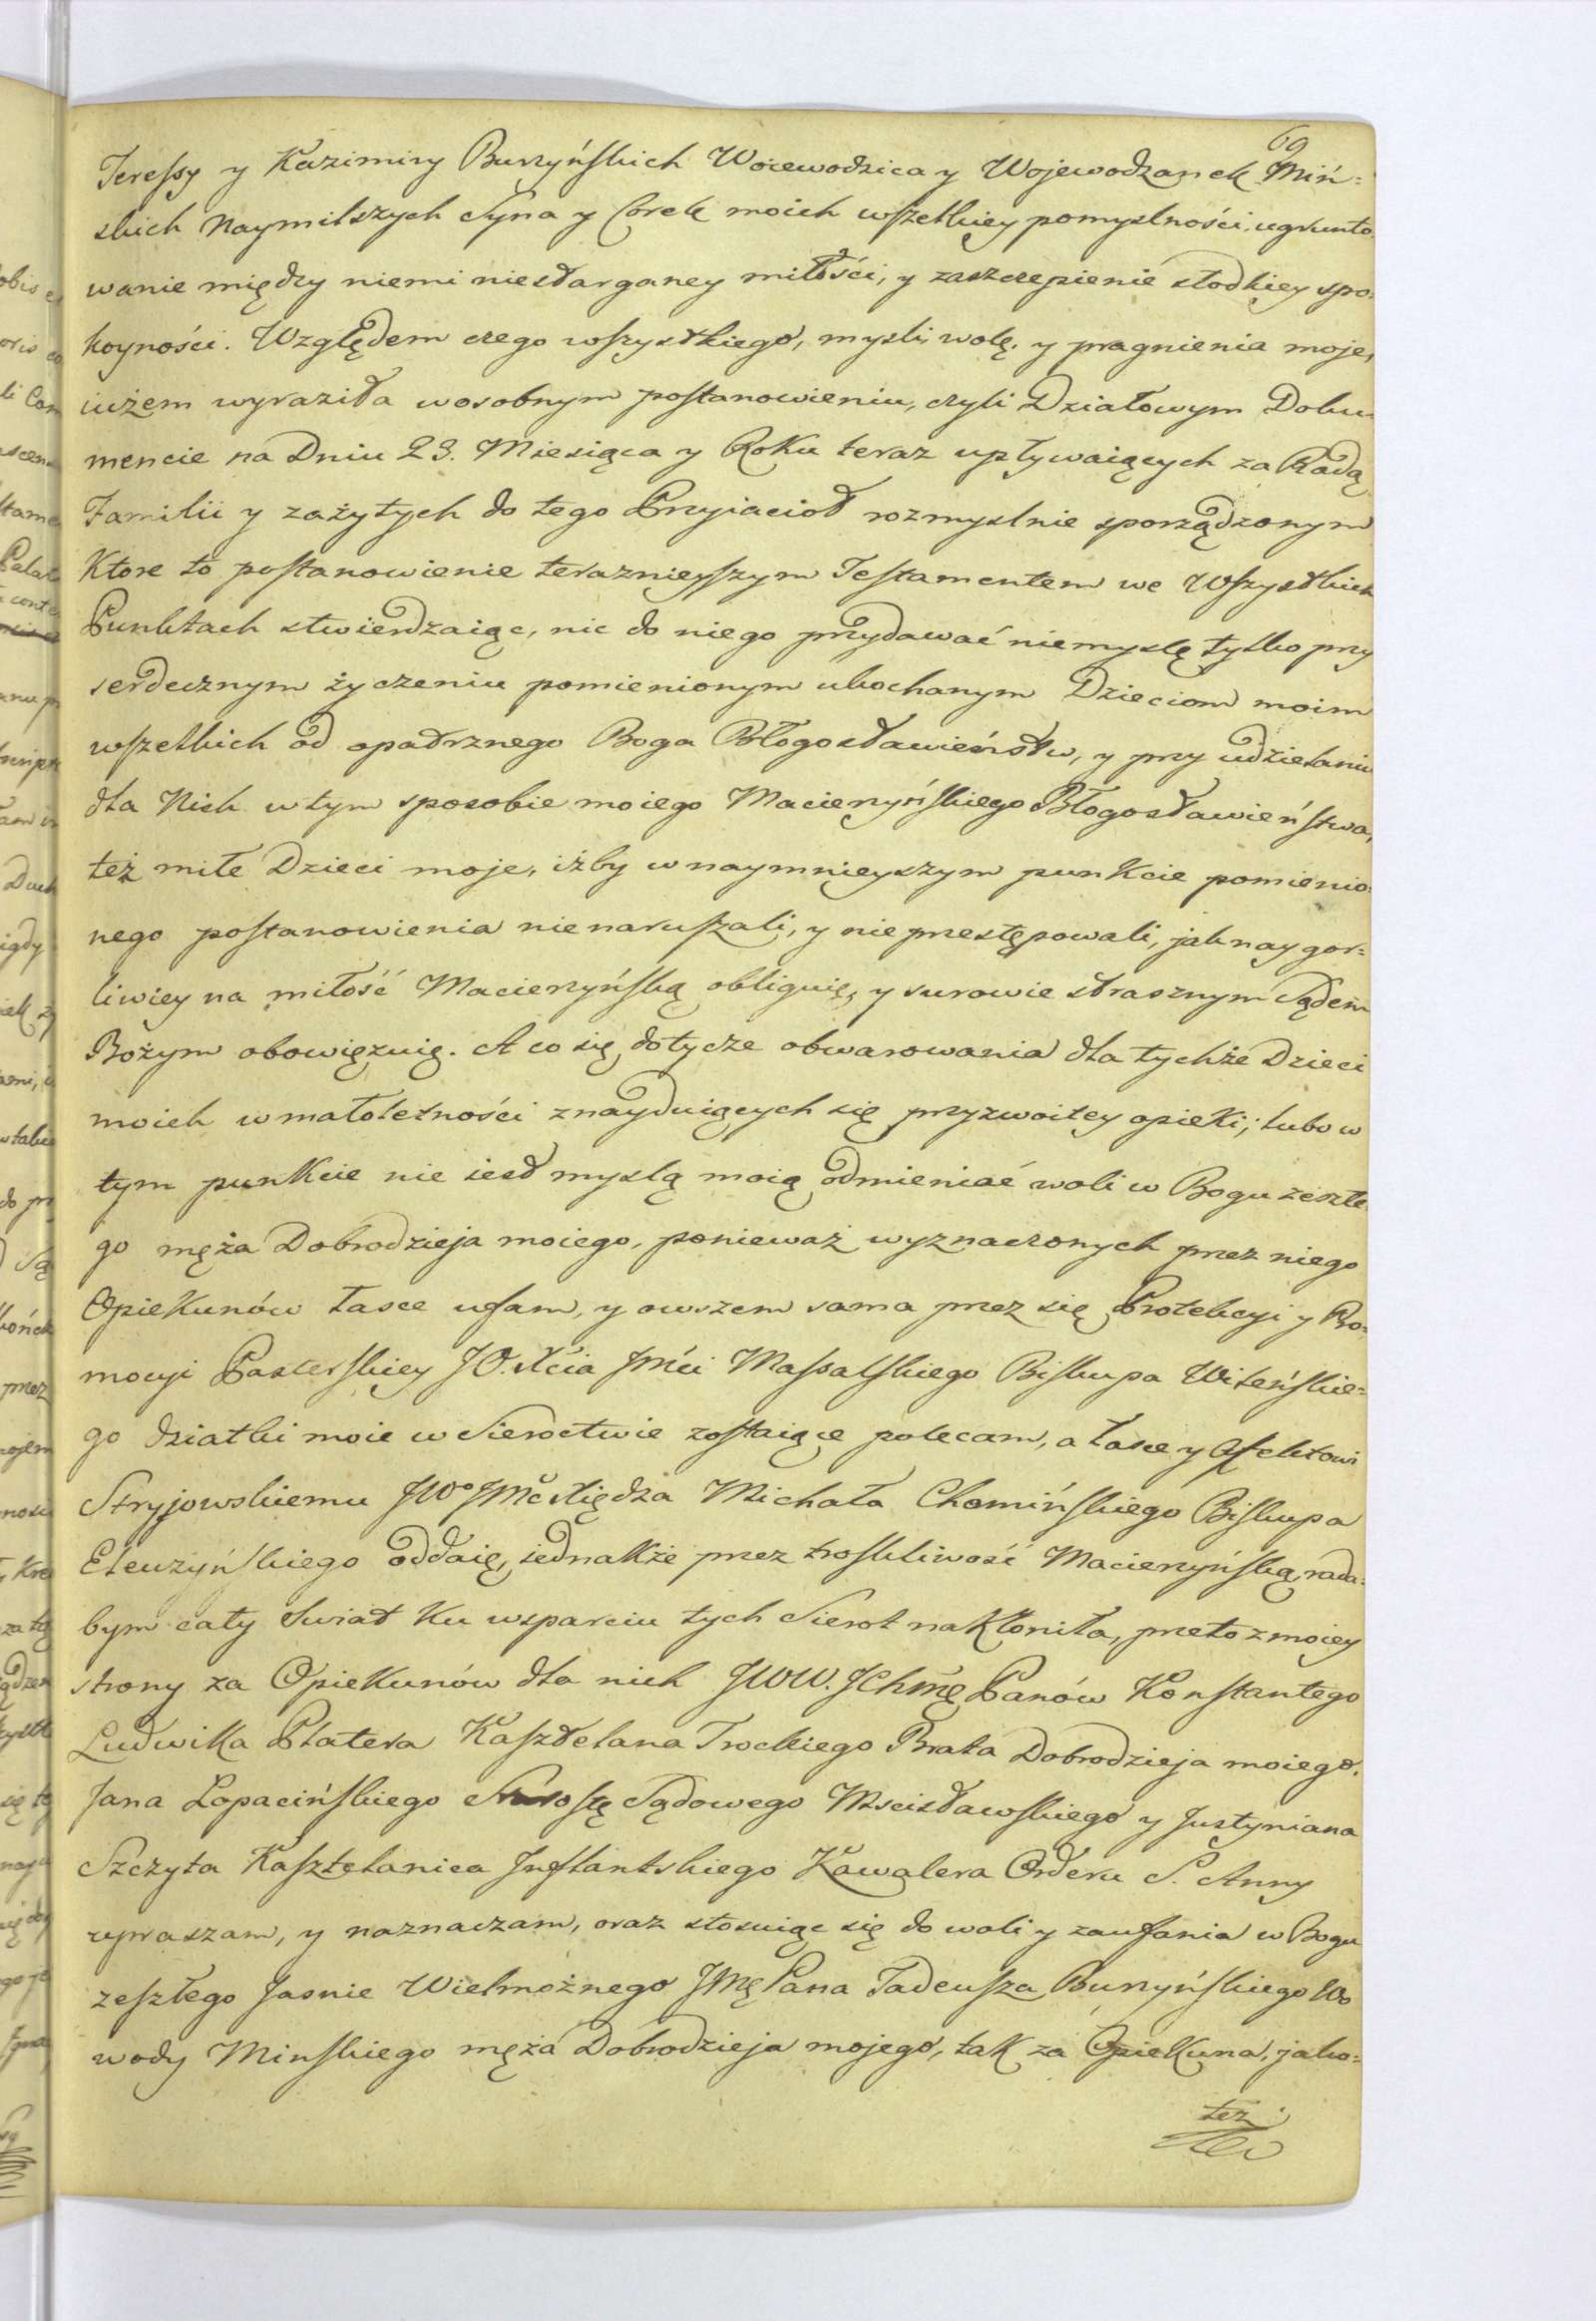 69
Teressy y Kazimiry Burzyńskich Woiewodzica y Wojewodzanek Miń=
skich Naymilszych Syna y Corek moich wszelkiey pomyslności, ugrunto
wanie między niemi niestarganey miłości, y zaszczepienie słodkiey spo=
koyności. Względem czego wszystkiego, mysli, wolę, y pragnienia moje,
iużem wyraziła wosobnym postanowieniu, czyli Działowym Doku=
mencie na Dniu 23. Miesiąca y Roku teraz upływaiących za Radą
Familii y zażytych do tego Przyiacioł rozmyslnie sporządzonym
Ktore to postanowienie teraznieyszym Testamentem we Wszystkich
Punktach stwierdzaiąc, nic do niego przydawać niemyslę tylko przy
serdecznym życzeniu pomienionym ukochanym Dzieciom moim
wszelkich od opatrznego Boga Błogosławieństw, y przy udzielaniu
dla Nich w tym sposobie moiego Macierzyńskiego Błogosławieństwa,
też miłe Dzieci moje, iżby w naymnieyszym punkcie pomienio=
nego postanowienia nienaruszali, y nieprzestępowali, jak nay gor=
liwiey na miłość Macierzyńską obliguię, y surowie strasznym Sądem
Bożym obowięzuię. A co się dotycze obwarowania dla tychże Dzieci
moich w małoletności znayduiących się przyzwoitey opieki; lubo w
tym punkcie nie iest myslą moią odmieniać woli w Bogu zeszłe
go męża Dobrodzieja moiego, ponieważ wyznaczonych przez niego
Opiekunów łasce ufam, y owszem sama przez się Protekcyi y Pro=
mocyi Pasterskiey JO. Xcia Jmći Massalskiego Biskupa Wileńskie=
go dziatki moie w Sieroctwie zostaiące polecam, a łasce y Afektowi
Stryjowskiemu JWo JMć Xiędza Michała Chomińskiego Biskupa
Eleuzyńskiego oddaię, iednakże przez troskliwość Macierzyńską, rada=
bym cały Swiat ku wsparciu tych Sierot nakłoniła, przeto z moiey
strony za Opiekunów dla nich JWW. JChmć Panów Konstantego
Ludwika Platera Kasztelana Trockiego Brata Dobrodzieja moiego,
Jana Łopacińskiego Starostę Sądowego Mscisławskiego y Justyniana
Szczyta Kasztelanica Inflantskiego Kawalera Orderu S. Anny
upraszam, y naznaczam, oraz stosuiąc się do woli y zaufania w Bogu
zeszłego Jasnie Wielmożnego JMć Pana Tadeusza Burzyńskiego Wo
wody Minskiego męża Dobrodzieja mojego, tak za Opiekuna, jako=
też